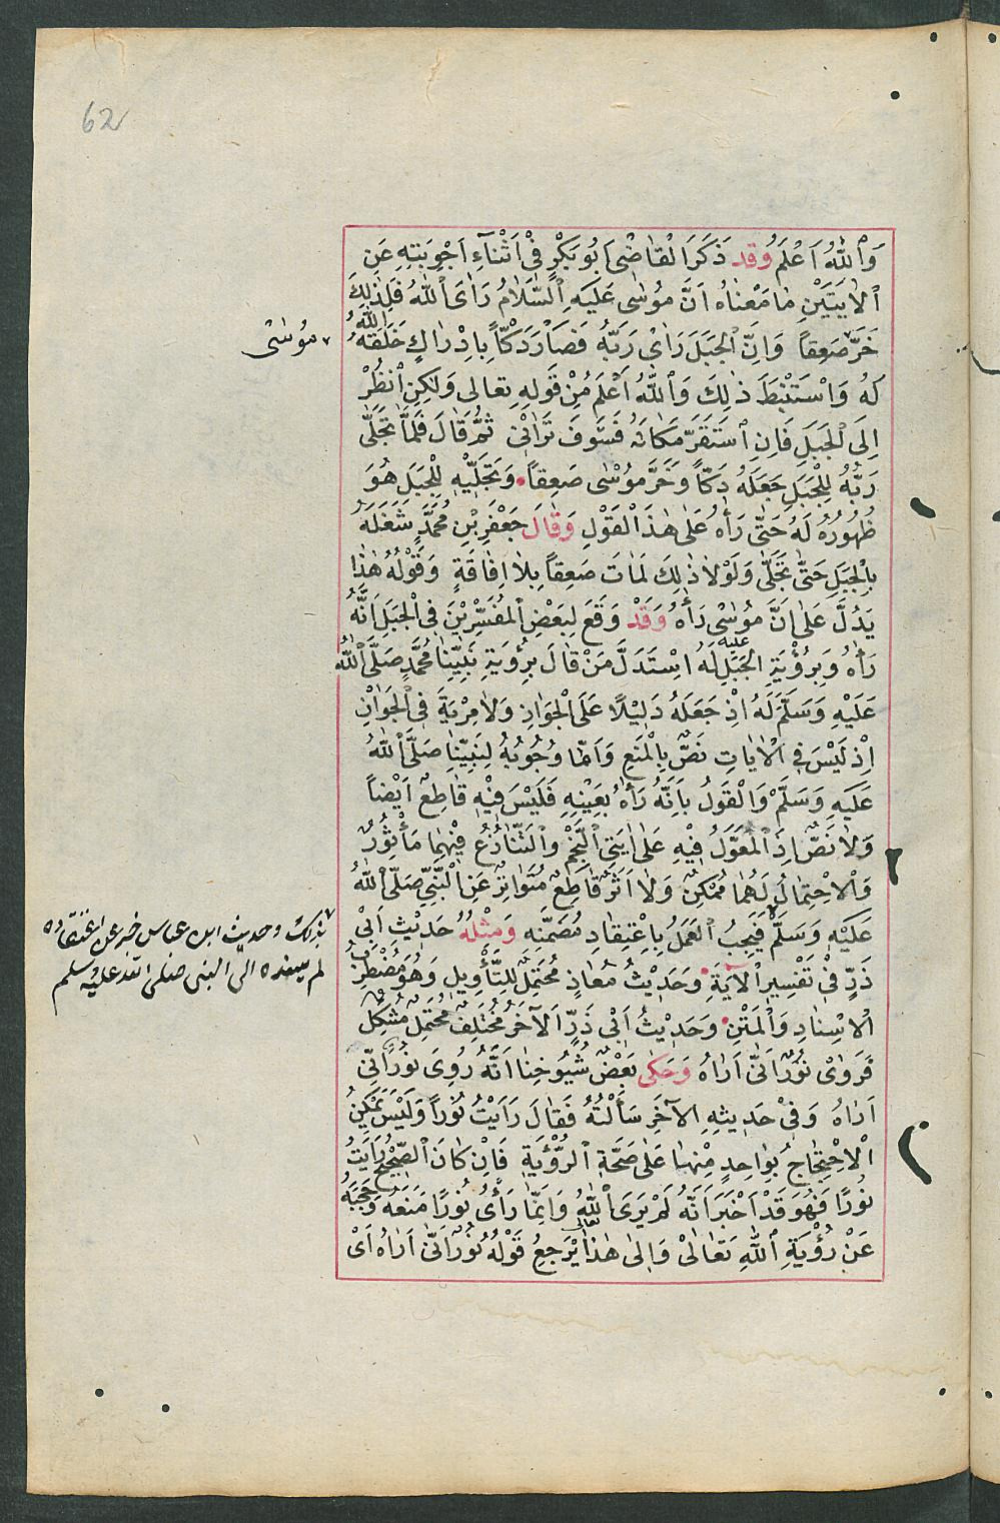 62
وَٱللّٰهُ اَعْلَمُ وَقَد ذَكَرَ الْقَاضِى اَبُو بَكْرٍ فِىْ اَثْنَآءِ اَجْوِبَتِهِ عَنِ
ٱلْاٰيَتَيْنِ مَا مَعْنَاهُ اَنَّ مُوسٰى عَلَيْهِ ٱلسَّلَامُ رَاَى ٱللّٰهَ فَلِذٰلِكَ
خَرَّ صَعِقاً وَاِنَّ الْجَبَلَ رَاٰى رَبَّهُ فَصَارَ دَكّاً بِاِدْرَاكٍ خَلَقَهُ اللّٰهُ
مُوسٰى
لَهُ وَاسْتَنْبَطَ ذٰلِكَ وَٱللّٰهُ اَعْلَمُ مِنْ قَوْلِهِ تعالى وَلٰكِنِ ٱنْظُرْ
اِلَى ٱلْجَبَلِ فَاِنِ ٱسْتَقَرَّ مَكَانَهُ فَسَوْفَ تَرَانِىْ ثُمَّ قَالَ فَلَمَّا تَجَلّٰى
رَبُّهُ لِلْجَبَلِ جَعَلَهُ دَكّاً وَخَرَّ مُوسٰى صَعِقاً وَتَجَلِّيهِ لِلْجَبَلِ هُوَ
ظُهُورُهُ لَهُ حَتّٰى رَاٰهُ عَلٰى هٰذَا الْقَوْلِ وَقَالَ جَعْفَرِ بْنِ مُحَمَّدٍ شَغَلَهُ
بِالْجَبَلِ حَتّٰى تَجَلّٰى وَلَوْلَا ذٰلِكَ لَمَاتَ صَعِقاً بِلَا اِفَاقَةٍ وَقَوْلُهُ هٰذَا
يَدُلُّ عَلٰى اَنَّ مُوسٰى رَاٰهُ وَقَدْ وَقَعَ لِبَعْضِ ٱلْمُفَسِّرِيْنَ فِى الْجَبَلِ اَنَّهُ
رَاٰهُ وَبِرُؤْيَةِ الْجَبَلِ لَهُ اِسْتَدَلَّ مَنْ قَالَ بِرُؤْيَةِ نَبِيِّنَا مُحَمَّدٍ صَلَّى ٱللّٰهُ
عَلَيْهِ وَسَلَّمَ لَهُ اِذْ جَعَلَهُ دَلِيْلًا عَلَى الْجَوَازِ وَلَا مِرْيَةَ فِى الْجَوَازِ
اِذْ لَيْسَ فِى الْاٰيَاتِ نَصٌّ بِالْمَنْعِ وَاَمَّا وُجُوبُهُ لِنَبِيِّنَا صَلَّى ٱللّٰهُ
عَلَيْهِ وَسَلَّمَ وَالْقَوْلُ بِاَنَّهُ رَاٰهُ بِعَيْنِهِ فَلَيْسَ فِيْهِ قَاطِعٌ اَيْضاً
وَلَا نَصٌّ اِذِ ٱلْمُعَوَّلُ فِيْهِ عَلٰى اٰيَتِى ٱلنَّجْمِ وَٱلتَّنَازُعُ فِيْهِمَا مَأْثُورٌ
وَالْاِحْتِمَالُ لَهُمَا مُمْكِنٌ وَلَا اَثَرٌ قَاطِعٌ مُتَوَاتِرٌ عَنِ ٱلنَّبِىِّ صَلَّى ٱللّٰهُ
عَلَيْهِ وَسَلَّمَ فَيَجِبُ ٱلْعَمَلُ بِاِعْتِقَادِ مُضَمَّنِهِ وَمِثْلُهُ حَدِيْثُ اَبِىْ
بذلك وحديث ابن عباس خبر عن اعتقاده
لم يسنده الى النبى صلى الله عليه وسلم
ذَرٍّ فِىْ تَفْسِيرِ الْاٰيَةِ وَحَدِيْثُ مُعَاذٍ مُحْتَمِلٌ لِلتَّأْوِيلِ وَهُوَ مُضْطَرِبُ
الْاِسْنَادِ وَالْمَتْنِ وَحَدِيْثُ اَبِى ذَرٍّ الْاٰخَرُ مُخْتَلِفٌ مُحْتَمِلٌ مُشْكِلٌ
فَرَوٰى نُوْرٌ اَنّٰى اَرَاهُ وَحَكٰى بَعْضُ شُيُوخِنَا اَنَّهُ رُوِىَ نُورَانِىٌّ
اَرَاهُ وَفِىْ حَدِيثِهِ الْاٰخَرِ سَاَلْتُهُ فَقَالَ رَاَيْتُ نُوْراً وَلَيْسَ يُمْكِنُ
الْاِحْتِجَاجُ بِوَاحِدٍ مِنْهَا عَلٰى صِحَّةِ ٱلرُّؤْيَةِ فَاِنْ كَانَ ٱلصَّحِيحُ رَاَيْتُ
نُوْرًا فَهُوَ قَدْ اَخْبَرَ اَنَّهُ لَمْ يَرَ ٱللّٰهَ وَاِنَّمَا رَاٰى نُورًا مَنَعَهُ وَحَجَبَهُ
عَنْ رُؤْيَةِ ٱللّٰهِ تَعَالٰى وَاِلٰى هٰذَا يَرْجِعُ قَوْلُهُ نُوْرٌ اَنّٰى اَرَاهُ اَىْ